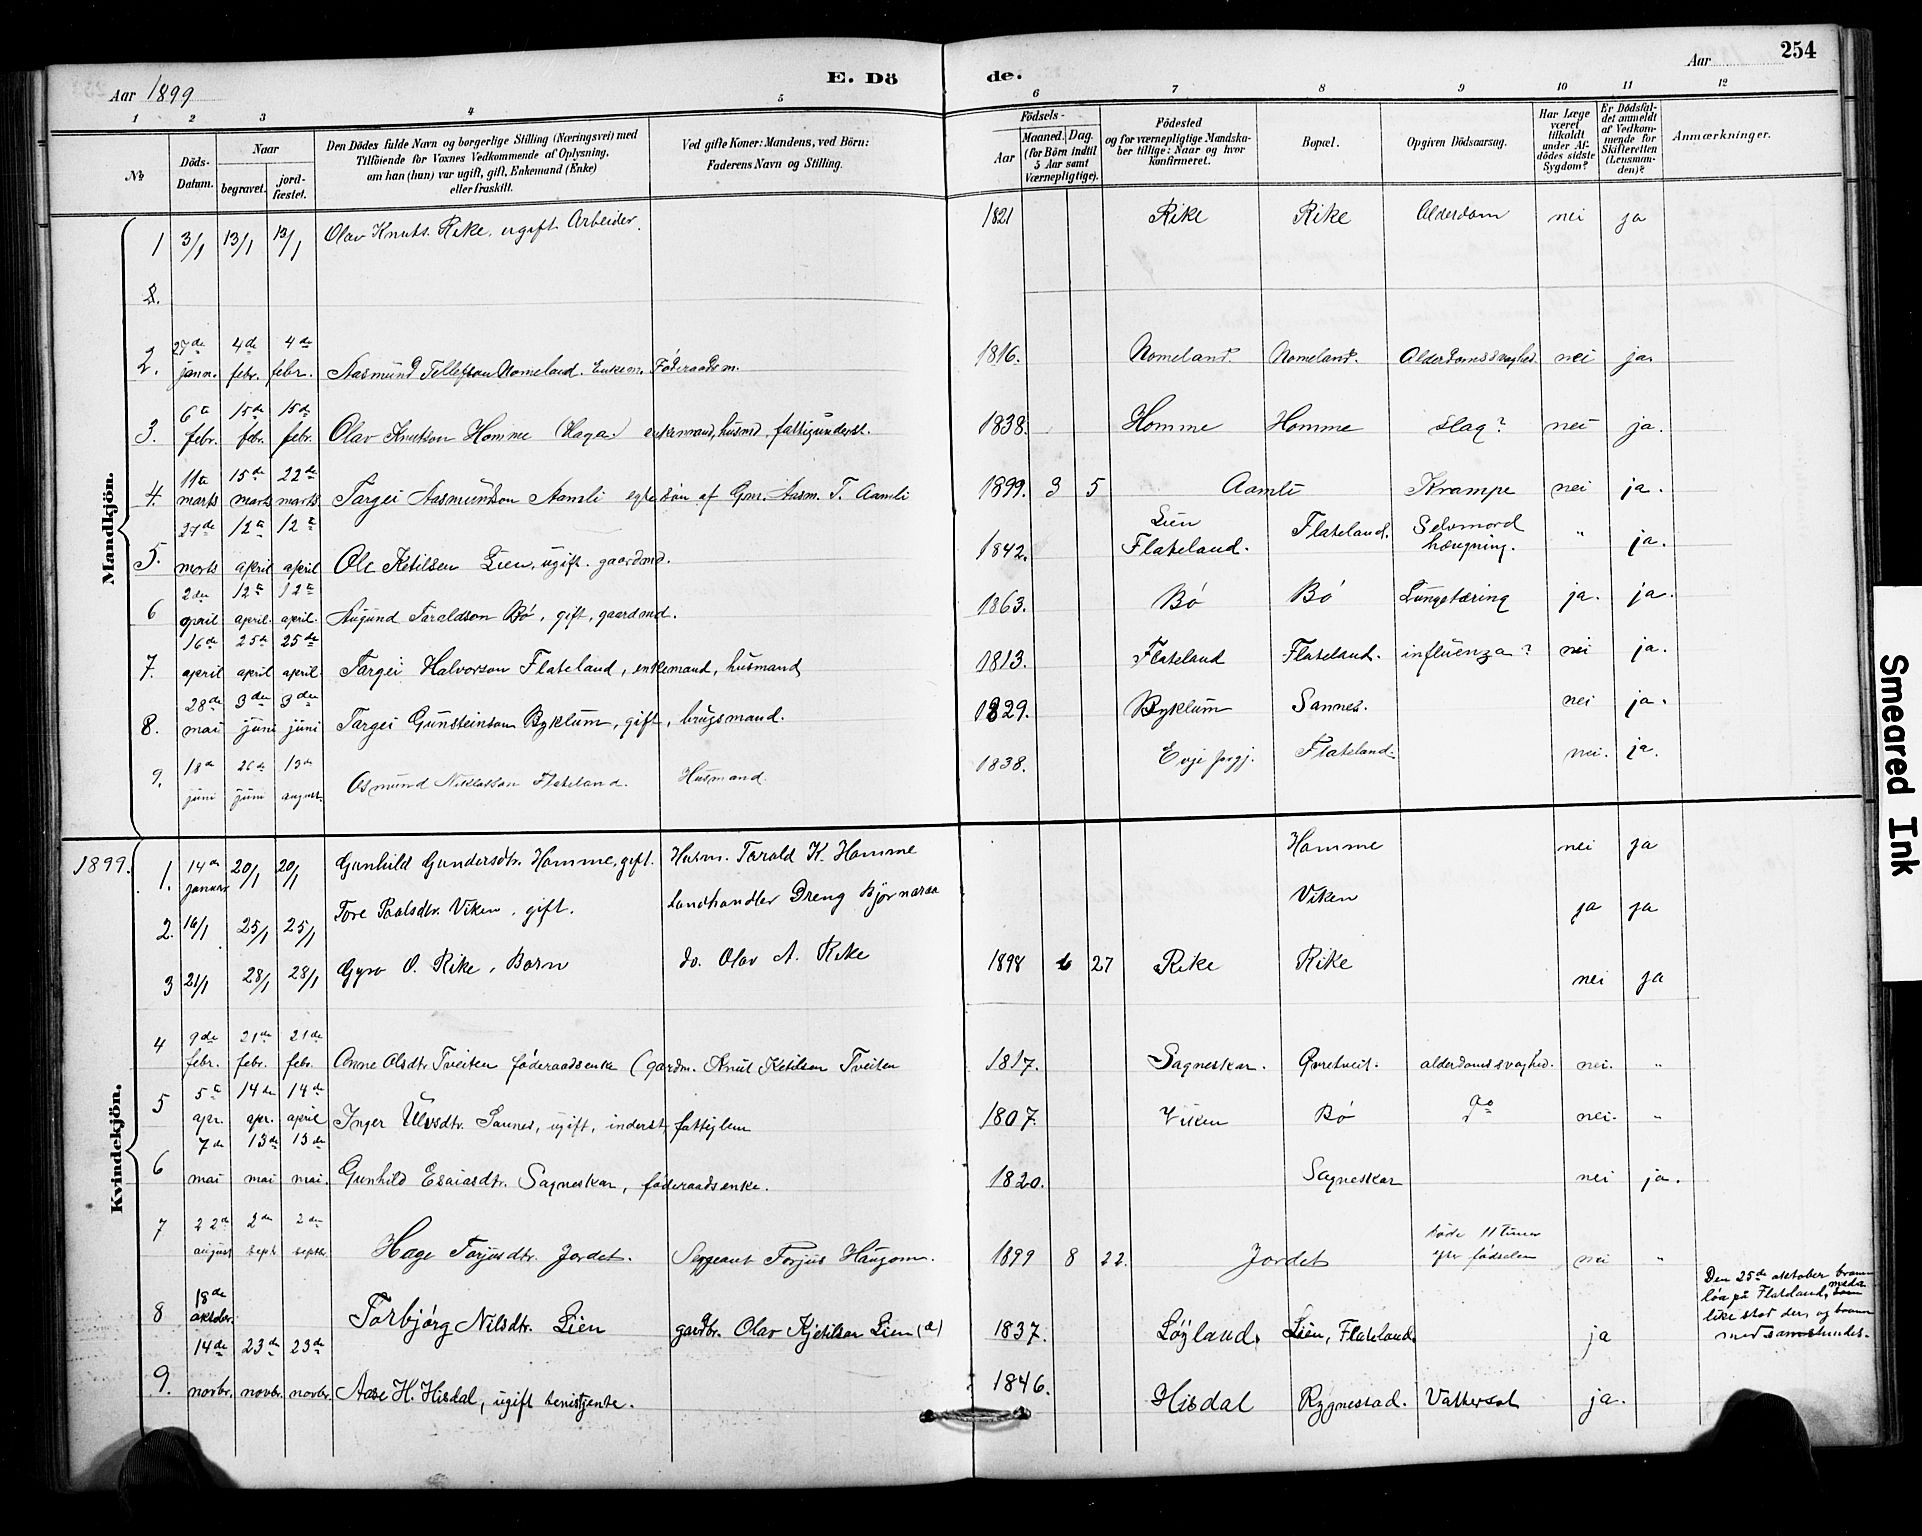 254
Aar 1899
E. Dö de.
Aar
1 2 3 4 5 6 7 8 9 10 11 12
No
Döds-Datum.
Naar
begravet.
jordfæstet.
Den Dödes fulde Navn og borgerlige Stilling (Næringsvei) med
Tilföiende for Voxnes Vedkommende af Oplysning,
om han (hun) var ugift, gift, Enkemand (Enke)
eller fraskilt.
Ved gifte Koner: Mandens, ved Börn:
Faderens Navn og Stilling.
Födsels-
Aar
Maaned. Dag.
(for Börn indtil
5 Aar samt
Værnepligtige).
Födested
og for værnepligtige Mandska-
ber tillige: Naar og hvor
konfirmeret.
Bopæl.
Opgiven Dödsaarsag.
Har Læge
været
tilkaldt
under Af-
dödes sidste
Sygdom?
Er Dödsfal-
det anmeldt
af Vedkom-
mende for
Skifteretten
(Lensman-
den)?
Anmærkninger.
Mandkjön.
1 3/1 13/1 13/1 Olav Knuts. Rike, ugift Arbeider. 1821 Rike Rike Alderdom nei ja
2.
2. 27de jann. 4de febr. 4de febr. Aasmund Tellefson Nomeland. Enkem. Føderaadsm. 1816. Nomeland. Nomeland. Alderdomssvaghed. nei ja.
3. 6te febr. 15de febr. 15de febr. Olav Knutson Homme (Haga) enkemand, husmd, fattigunderst. 1838. Homme Homme Slag? nei ja.
4. 11te marts 15de marts 22de marts Targei Aasmundson Aamli egte søn af Gm. Aasm. T. Aamli 1899. 3 5 Aamli Krampe nei ja.
5. 27de marts 12te april 12te april Ole Ketilsen Lien, ugift. gaardmd. 1842. Lien Flateland. Flateland. Selvmord hængning. " ja.
6 2den april 12te april. 12te april. Augund Taraldson Bø, gift, gaardmd. 1863. Bø Bø Lungetæring ja. ja.
7. 16de april 25de april 25de april. Targei Halvorson Flateland, enkemand, husmand 1813. Flateland Flateland. influenza? nei ja.
8. 28de mai 3die juni 3die juni Targei Gunsteinson Byklum, gift, brugsmand. 1829. Byklum Sannes. nei ja.
9. 18de juni 26de juni 13de august. Osmund Niklasson Flateland. Husmand. 1838. Evje prgj. Flateland. nei. ja.
Kvindekjön.
1899.
1. 14de januar 20/1 20/1 Gunhild Gundersdtr. Homme, gift. Husm. Tarald K. Homme Homme nei ja
2. 16/1 25/1 25/1 Tore Paalsdtr. Viken, gift. Landhandler Dreng Bjørnaraa Viken ja ja
3 21/1 28/1 28/1 Gyro O. Rike, Barn do. Olav A. Rike 1898 6 27 Rike Rike nei ja
4 9de febr. 21de febr. 21de febr. Anne Olsdtr Tveiten føderaadsenke (gardm. Knut Ketilson Tveiten 1817. Sagneskar. Øvretveit. alderdomssvaghed. nei. "
5 5te apr. 14de apr. 14de april Inger Ulvsdtr. Sannes, ugift, inderst, fattiglem 1807. Viken Bø do nei. "
6 7de mai 13de mai 13de mai. Gunhild Esaiasdtr. Sagneskar, føderaadsenke. 1820. Sagneskar nei ja.
7 22de august 2den septr. 2den septr. Hage Torjusdtr. Jordet. Sergeant Torjus Haugom. 1899 8 22. Jordet døde 11 timer efter fødselen nei "
8 18de oktober. Torbjørg Nilsdtr. Lien gardbr. Olav Kjetilson Lien (d) 1837. Løyland. Lien, Flateland. ja
Den 25de oktober brann
løa på Flateland, meda
like stod der, og brann
med samstundes.
9. 14de novbr. 23de novbr. 23de novbr. Aase H. Hisdal, ugift tenistgente. 1846. Hisdal Rygnestad. Vattersot ja.
Smeared Ink